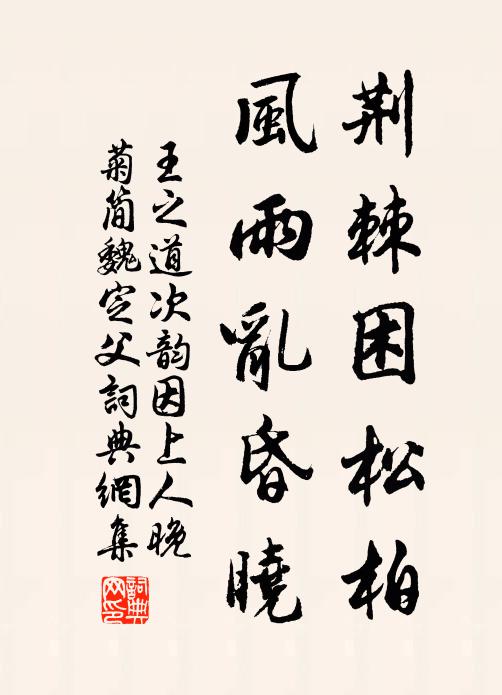 荆棘困松柏
風雨亂昏曉
王之道次韵因上人晚
菊簡魏定父詞典網集
詞典網印